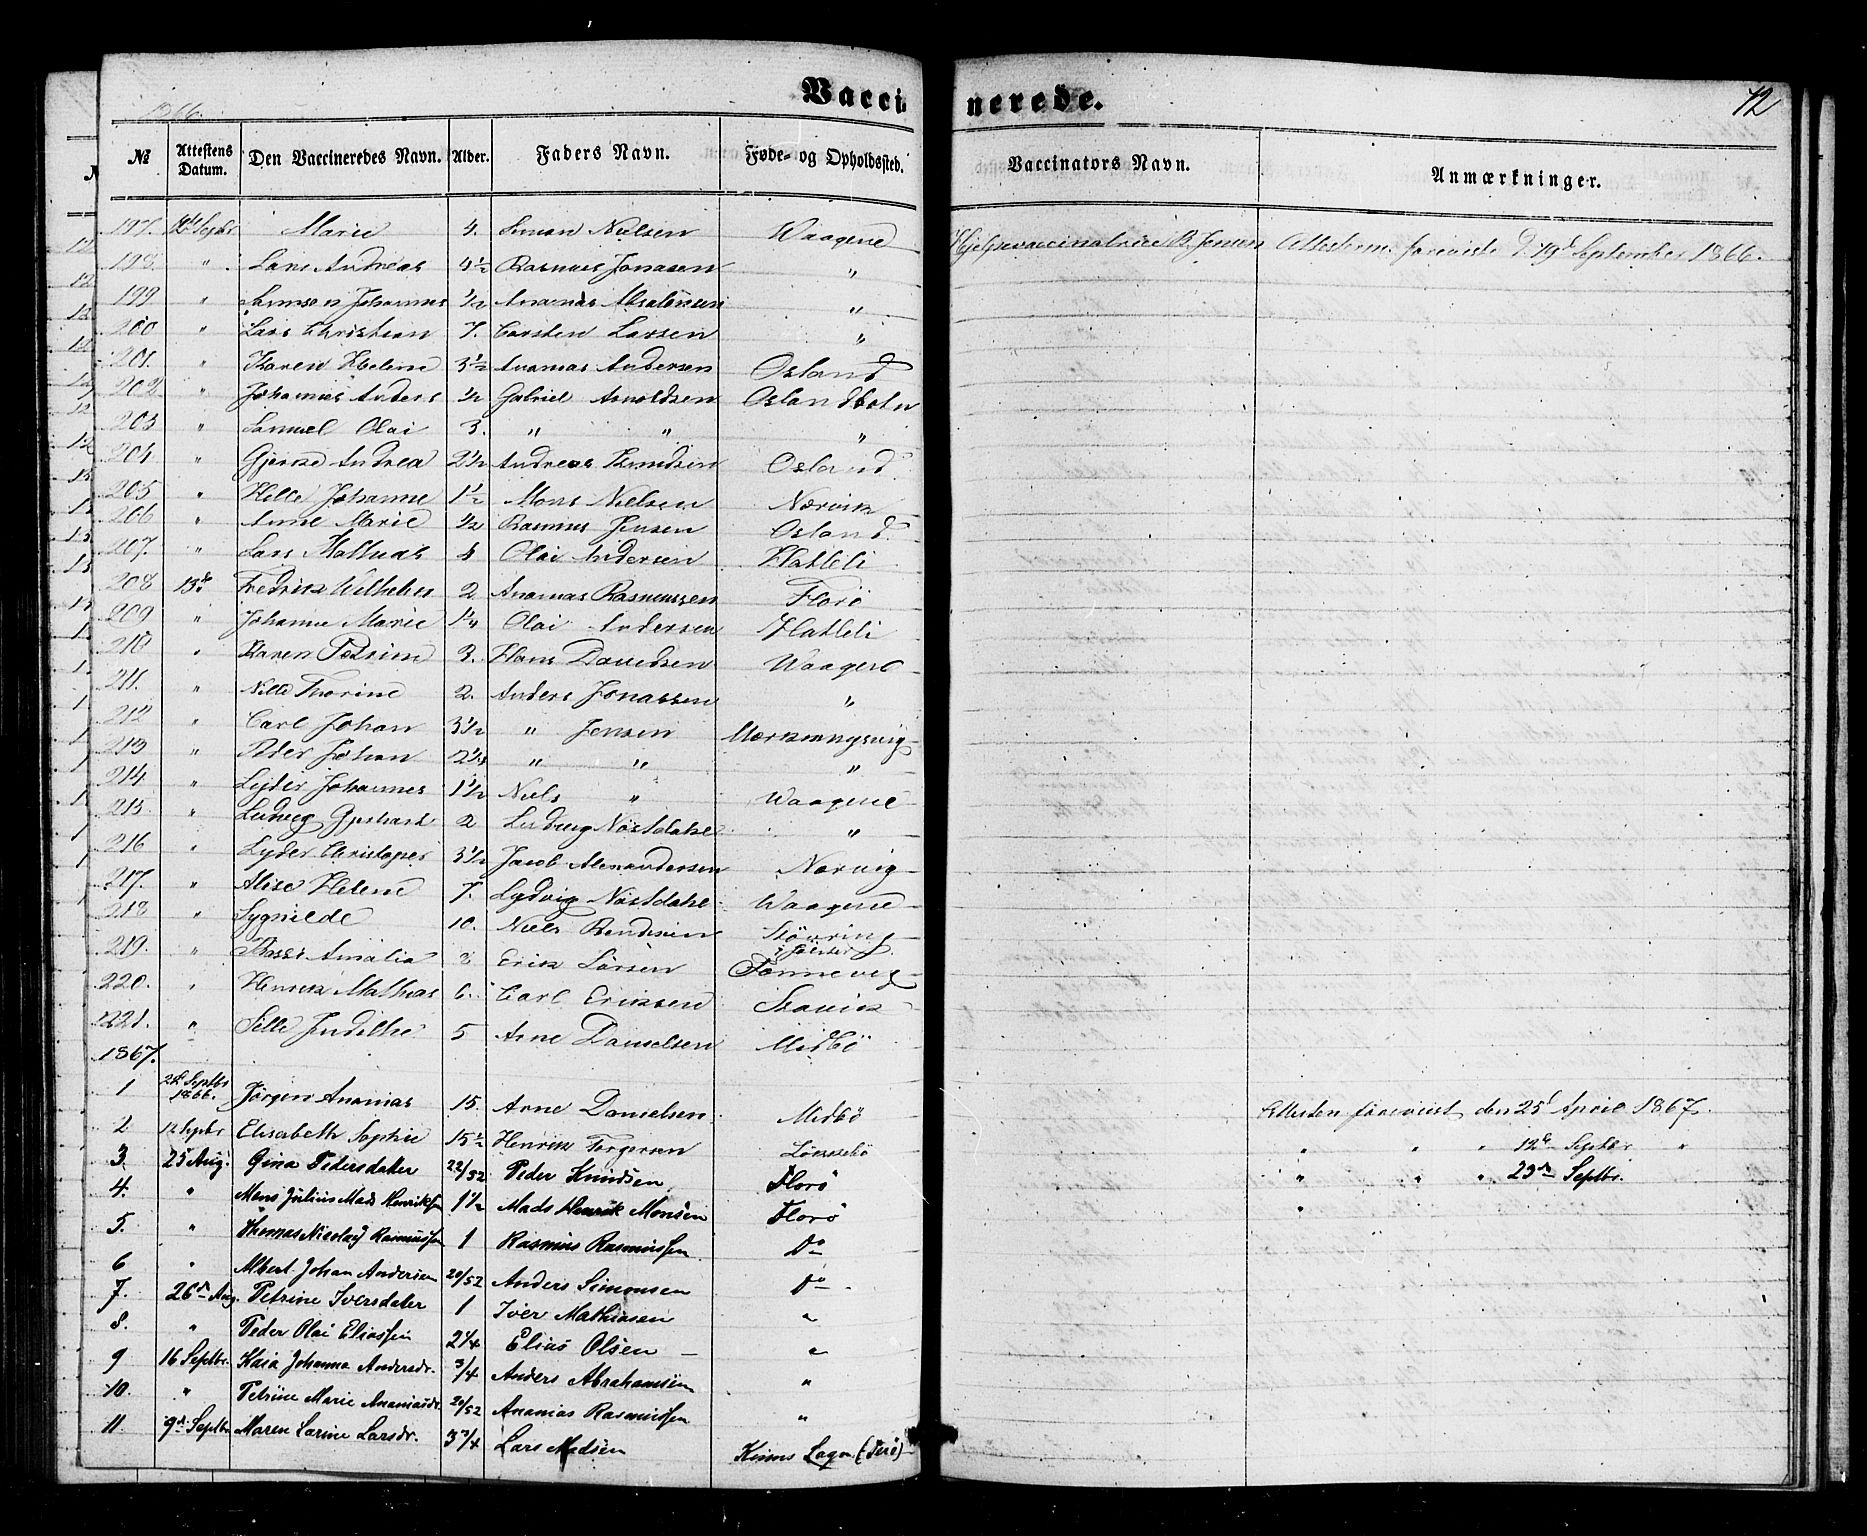 Vaccinerede.
72
1866.
№ Attestens Datum. Den Vaccineredes Navn. Alder. Faders Navn. Føde- og Opholdssted. Vaccinators Navn. Anmærkninger.
197. Septbr Marie 4. Simon Nielsen Waagene Hjelpevaccinatrice B. Jensen Attesterne foreviste d 19d September 1866.
198. " Lars Andreas 4½ Rasmus Jonasen "
199 " Samson Johannes ½ Ananias Absalonsen "
200 " Lars Christian 7. Carsten Larsen "
201. " Karen Helene 3½ Ananias Andersen Osland
202. " Johannes Anders ½ Gabriel Arnoldsen Oslandbotn
203 " Samuel Olai 3. " " "
204 " Gjertine Andrea 2½ Andreas Knudsen Osland
205 " Helle Johanne 1½ Mons Nielsen Nærvik
206 " Anne Marie ½ Rasmus Jensen Osland
207. " Lars Mathias 4 Olai Andersen Hatleli
208 13de Fredrik Wilhelm 2 Ananias Rasmussen Florö
209 " Johanne Marie 1¼ Olai Andersen Hatleli
210 " Karen Petrine 3. Hans Davidsen Waagene
211. " Nille Thorine 2. Anders Jonassen "
212 " Carl Johan 3½ " Jensen
213 " Peder Johan 2¼ " " "
214 " Lyder Johannes 1½ Niels " Waagene
215. " Ludvig Gerhard 2 Ludvig Nöstdahl "
216 " Lyder Christopher 3½ Jacob Alexandersen Norvig
217. " Alise Helene 7. Lydvig Nöstdahl Waagene
218 " Sygnilde 10. Niels Bendixen Støvring i Jölster
219. " Amalia 8 Erik Larsen Tonnevig
220. " Henrik Mathias 6. Carl Eriksen Stavik
221. " Sille Judithe 5 Arne Danielsen Midbö
1867.
1 Septbr 1866. Jørgen Ananias 15. Arne Danielsen Midbö Attesten forevist den 25d April 1867.
2 12 Septbr Elisabeth Sophie 15½ Henrik Torgersen Løkkebö " " " 12te Septbr "
3. 25 Aug. Gina Pedersdatter 22/52 Peder Knudsen Florö " " " 23de Septbr.
4. " Mons Julius Mads Henriksen 1½ Mads Henrik Monsen Florö "
5. " Thomas Nicolay Rasmussen 1 Rasmus Rasmussen Do
6 " Albert Johan Andersen 20/52 Anders Simonsen Do
7. 26de Aug. Petrine Iversdatter 1 Iver Mathiasen "
8. " Peder Olai Eliassen 2¼ Elias Olsen "
9 16 Septbr. Kaia Johanna Andersdr. ¾ Anders Abrahamsen "
10. " Petrine Marie Ananiasdr. 20/52 Ananias Rasmussen "
11. 9de Septbr Maren Karine Larsdr. 3¾ Lars Madsen Kinns Sogn